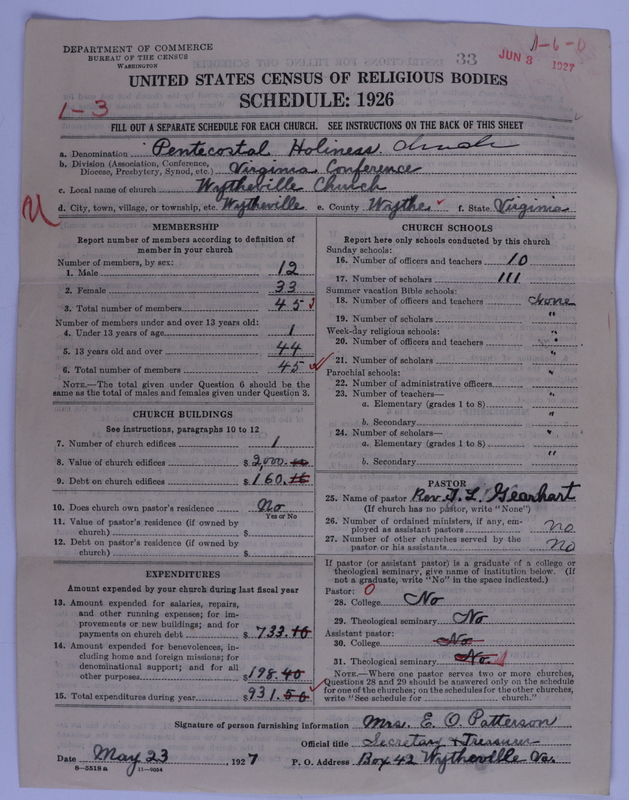 DEPARTMENT OF COMMERCE
BUREAU OF THE CENSUS
WASHINGTON
33
JUN 3 1927
1-6-0
UNITED STATES CENSUS OF RELIGIOUS BODIES
SCHEDULE: 1926
1-3
FILL OUT A SEPARATE SCHEDULE FOR EACH CHURCH. SEE INSTRUCTIONS ON THE BACK OF THIS SHEET
a. Denomination Pentecostal Holiness Church
b. Division (Association, Conference, Diocese, Presbytery, Synod, etc.) Virginia Conference
c. Local name of church Wytheville Church
d. City, town, village, or township, etc. Wytheville e. County Wythe f. State Virginia
U
MEMBERSHIP
Report number of members according to definition of
member in your church
Number of members, by sex:
1. Male 12
2. Female 33
3. Total number of members 45
Number of members under and over 13 years old:
4. Under 13 years of age 1
5. 13 years old and over 44
6. Total number of members 45
NOTE.—The total given under Question 6 should be the
same as the total of males and females given under Question 3.
CHURCH BUILDINGS
See instructions, paragraphs 10 to 12
7. Number of church edifices 1
8. Value of church edifices $ 2,000.
9. Debt on church edifices $ 160.
10. Does church own pastor's residence No
Yes or No
11. Value of pastor's residence (if owned by
church) $
12. Debt on pastor's residence (if owned by
church) $
EXPENDITURES
Amount expended by your church during last fiscal year
13. Amount expended for salaries, repairs,
and other running expenses; for im-
provements or new buildings; and for
payments on church debt $ 733.10
14. Amount expended for benevolences, in-
cluding home and foreign missions; for
denominational support; and for all
other purposes $ 198.40
15. Total expenditures during year $ 931.50
CHURCH SCHOOLS
Report here only schools conducted by this church
Sunday schools:
16. Number of officers and teachers 10
17. Number of scholars 111
Summer vacation Bible schools:
18. Number of officers and teachers None
19. Number of scholars "
Week-day religious schools: "
20. Number of officers and teachers "
21. Number of scholars "
Parochial schools: "
22. Number of administrative officers
23. Number of teachers—
a. Elementary (grades 1 to 8) "
b. Secondary "
24. Number of scholars— "
a. Elementary (grades 1 to 8)
b. Secondary "
PASTOR
25. Name of pastor Rev. T. L. Gearhart
(If church has no pastor, write "None")
26. Number of ordained ministers, if any, em-
ployed as assistant pastors no
27. Number of other churches served by the
pastor or his assistants No
If pastor (or assistant pastor) is a graduate of a college or
theological seminary, give name of institution below. (If
not a graduate, write "No" in the space indicated.)
Pastor: 0
28. College No
29. Theological seminary No
Assistant pastor:
30. College No
31. Theological seminary No
NOTE.—Where one pastor serves two or more churches,
Questions 28 and 29 should be answered only on the schedule
for one of the churches; on the schedules for the other churches,
write "See schedule for church."
Signature of person furnishing information Mrs. E. O. Patterson
Official title Secretary & Treasurer
Date May 23, 1927 P. O. Address Box 42 Wytheville Va.
8—5518 a 11—9054